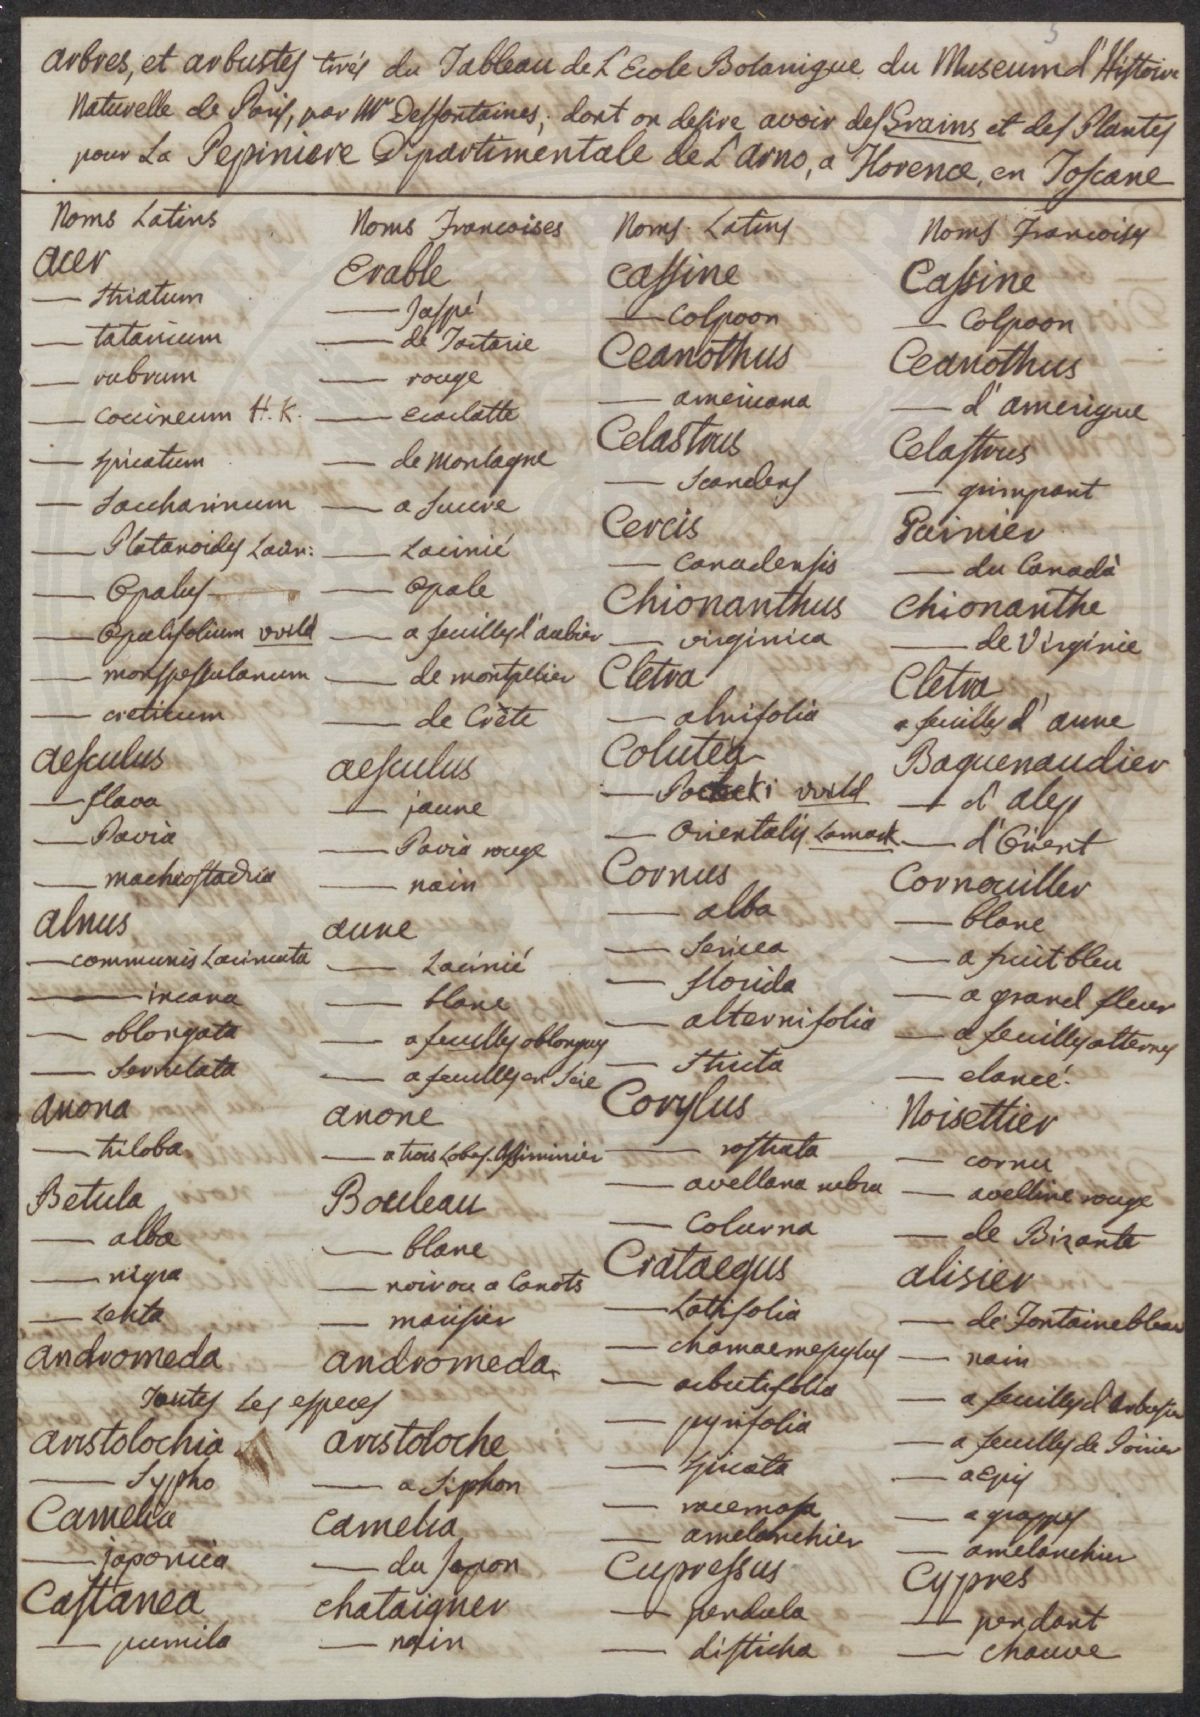 5
arbres, et arbustes tirés du Tableau de L Ecole Botanique du Museum d'Histoire
Naturelle de Paris, par Mr Desfontaines; dont on desire avoir des Grains et des Plantes
pour La Pepiniere Départimentale de L'arno, a Florence, en Toscane
Noms Latins
acer
— striatum
— tataricum
— rubrum
— coccineum H. K.
— spicatum
— saccharinum
— Platanoides Lacin:
— Opalus
— Opulifolium Wild
— monspessulanum
— creticum
aesculus
— flava
— Pavia
— machrostachia
alnus
— communis Laciniata
— incana
— oblongata
— serrulata
anona
— triloba
Betula
— alba
— nigra
— Lenta
andromeda
Toutes Les especes
aristolochia
— Sypho
Camelia
— japonica
Castanea
— pumila
Noms Francoises
Erable
— Jaspé
— de Tartarie
— rouge
— ecarlatte
— de montagne
— a Sucre
— Lacinié
— Opale
— a feuilles d'aubier
— de montpelier
— de Crète
aesculus
— jaune
— Pavia rouge
— nain
aune
— Lacinié
— blanc
— a feuilles oblongues
— a feuilles en Scie
anone
— a trois Lobes. Assiminier
Bouleau
— blanc
— noir ou a Canots
— merisier
andromeda
aristoloche
— a Siphon
Camelia
— du Japon
chataigner
— nain
Noms Latins
Cassine
— Colpoon
Ceanothus
— americana
Celastrus
— Scandens
Cercis
— Canadensis
Chionanthus
— virginica
Cletra
— alnifolia
Colutea
— Pocheki Wild
— Orientalis Lamark
Cornus
— alba
— Sericea
— florida
— alternifolia
— Stricta
Corylus
— rostrata
— avellana rubra
— Colurna
Crataegus
— Latifolia
— chamaemespylus
— arbutifolia
— pyrifolia
— spicata
— racemosa
— amelanchier
Cupressus
— pendula
— disticha
Noms Francoises
Cassine
— Colpoon
Ceanothus
— d'amerigue
Celastrus
— grimpant
Gainier
— du Canadà
Chionanthe
— de Virginie
Cletra
a feuilles d'aune
Baguenaudier
— d'alep
— d'Orient
Cornouiller
— blanc
— a fruit bleu
— a grand fleur
— a feuilles alternes
— elancé
Noisettier
— cornu
— avelline rouge
— de Bizante
alisier
— de Fontainebleau
— nain
— a feuilles d'Arbousier
— a feuilles de Poirier
— a epis
— a grappes
— amelanchier
Cypres
— pendant
— chauve